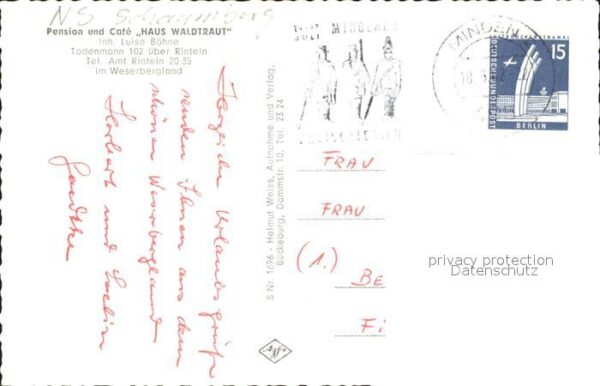 NS Schaumburg
Pension und Café „HAUS WALDTRAUT"
Inh. Luise Böhne
Todenmann 102 über Rinteln
Tel. Amt Rinteln 20 35
im Weserbergland
Herzliche Urlaubsgrüße
senden Ihnen aus dem
schönen Weserbergland
Herbert und
S Nr. 1696 - Helmut Weiss, Aufnahme und Verlag,
Bückeburg, Dammstr. 10, Tel. 23 24
Agfa
MINDENER
FREISCHIESSEN
MINDEN
15
DEUTSCHE BUNDESPOST
BERLIN
FRAU
FRAU
(1.) BE
FI
privacy protection
Datenschutz